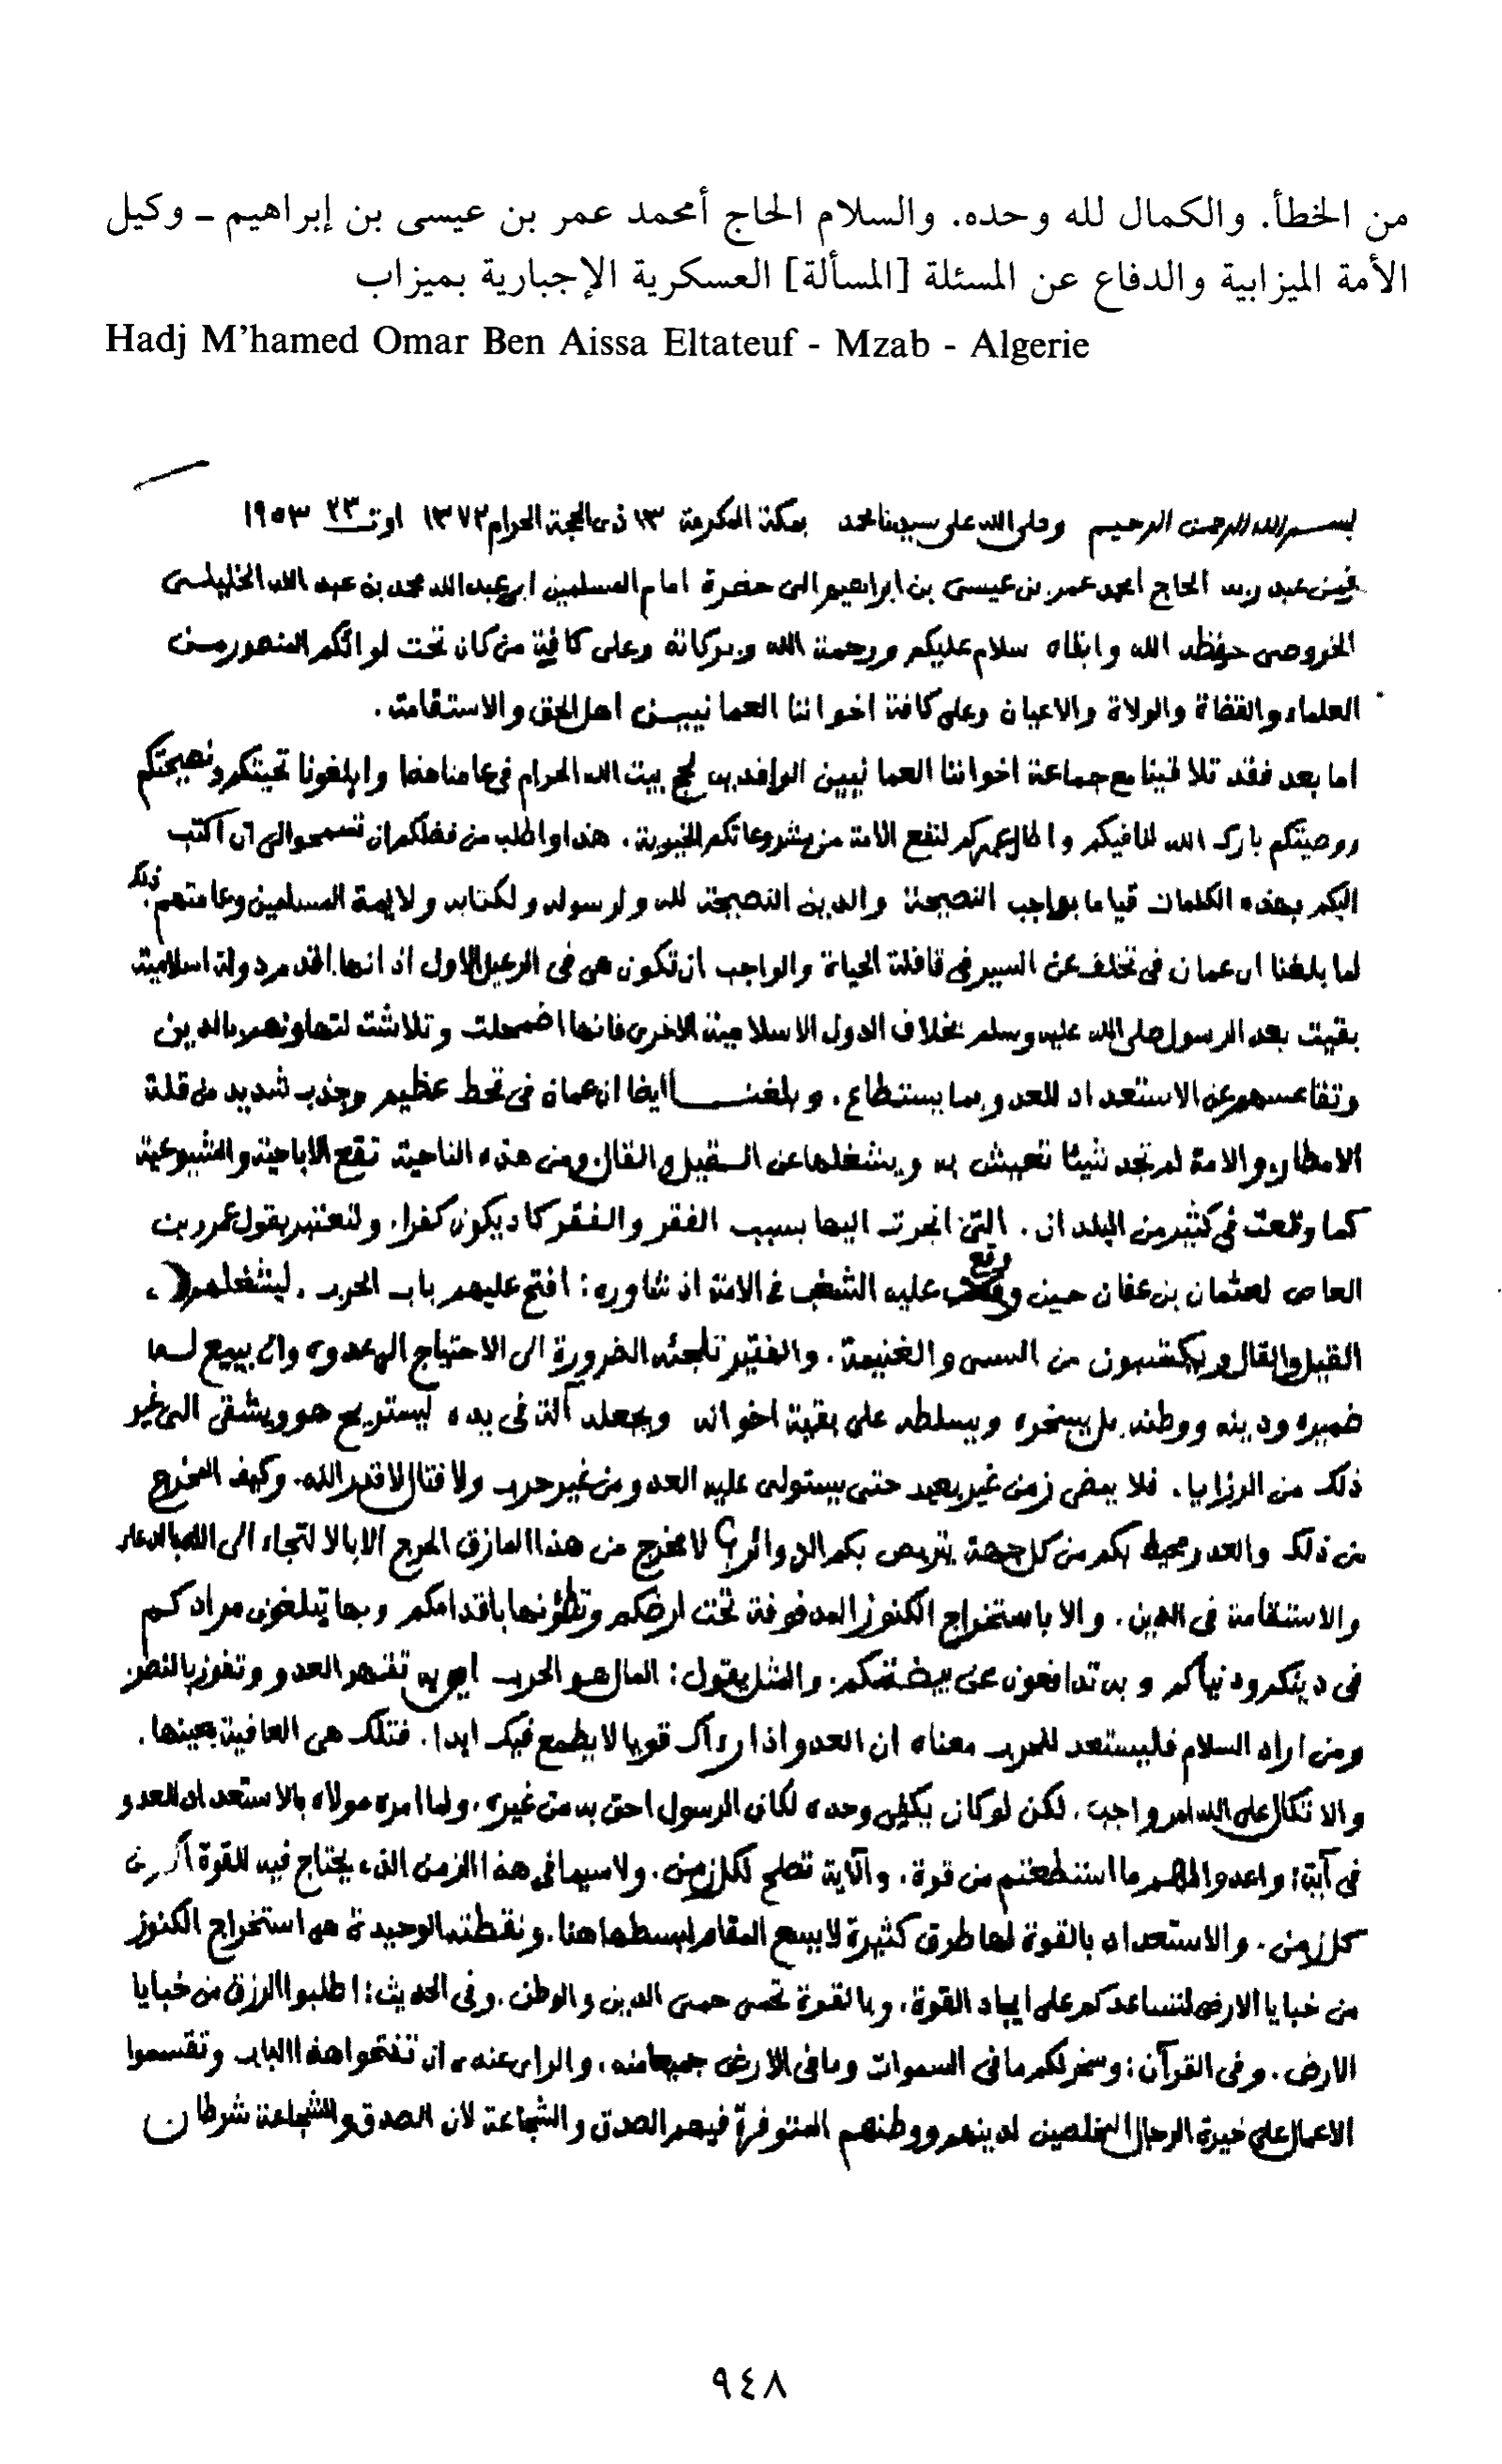 من الخطأ. والكمال لله وحده. والسلام الحاج أمحمد عمر بن عيسى بن إبراهيم ـ وكيل
الأمة الميزابية والدفاع عن المسئلة [المسألة] العسكرية الإجبارية بميزاب
Hadj M'hamed Omar Ben Aissa Eltateuf - Mzab - Algerie
بسم الله الرحمن الرحيم وصلى الله على سيدنا محمد بمكة المكرمة ١٣ ذي الحجة الحرام ١٣٧٢ اوت ٢٣ ١٩٥٣
فمن عبد ربه الحاج امحمد عمر بن عيسى بن ابراهيم الى حضرة امام المسلمين ابى عبد الله محمد بن عبد الله الخليلى
الخروصى حفظه الله وابقاه سلام عليكم ورحمة الله وبركاته وعلى كافة من كان تحت لوائكم المنصور من
العلماء والقضاة والولاة والاعيان وعلى كافة اخواننا العمانيين اهل الحق والاستقامة.
اما بعد فقد تلاقينا مع جماعة اخواننا العمانيين الوافدين لحج بيت الله الحرام فى عامنا هذا وابلغونا تحيتكم ونصيحتكم
ووصيتكم بارك الله لنا فيكم واطال عمركم لنفع الامة من مشروعاتكم الخيرية. هذا واطلب من فضلكم ان تسمحوا الى ان اكتب
اليكم بهذه الكلمات قياما بواجب النصيحة والدين النصيحة لله ولرسوله ولكتابه ولايمة المسلمين وعامتهم. ذلك
لما بلغنا ان عمان فى تخلف عن السير فى قافلة الحياة والواجب ان تكون هى فى الرعيل الاول اذ انها اقدم دولة اسلامية
بقيت بعد الرسول صلى الله عليه وسلم بخلاف الدول الاسلامية الاخرى فانها اضمحلت وتلاشت لتهاونهم بالدين
وتقاعسهم عن الاستعداد للعدو بما يستطاع. وبلغنا ايضا ان عمان فى قحط عظيم وجذب شديد من قلة
الامطار والامة لم تجد شيئا تعيش به ويشغلها عن القيل والقال ومن هذه الناحية تقع الاباحية والشيوعية
كما وقعت فى كثير من البلدان. التى انجرت اليها بسبب الفقر والفقر كاد يكون كفرا. ولنعتبر بقول عمرو بن
العاص لعثمان بن عفان حين وقع عليه الشغب فى الامة اذ شاوره: افتح عليهم باب الحرب. ليشغلهم
القيل والقال ويكتسبون من السبى والغنيمة. والفقير تلجئه الضرورة الى الاحتياج الى عدوه وان يبيع لـه
ضميره ودينه ووطنه بل يسخره ويسلطه على بقية اخوانه ويجعله آلة فى يده ليستريح هو ويشقى الى غير
ذلك من الرزايا. فلا يمضى زمن غير بعيد حتى يستولى عليه العدو من غير حرب ولا قتال لا قدر الله. وكيف المخرج
من ذلك والعدو محيط بكم من كل جهة يتربص بكم الدوائر؟ لا مخرج من هذا المازق الحرج الا بالالتجاء الى الله بالدعاء
والاستقامة فى الدين. والا باستخراج الكنوز المدفونة تحت ارضكم وتطؤنها باقدامكم وبها تبلغون مرادكم
فى دينكم ودنياكم وبه تدافعون عن بيضتكم. والمثل يقول: المال هو الحرب اى به تقهر العدو وتفوز بالنصر.
ومن اراد السلام فليستعد للحرب معناه ان العدو اذا رءاك قويا لا يطمع فيك ابدا. فتلك هى العافية بعينها.
والاتكال على الله امر واجب. لكن لو كان يكفى وحده لكان الرسول احق به من غيره. ولما امره مولاه بالاستعداد للعدو
فى آية: واعدوا لهم ما استطعتم من قوة. والآية تصلح لكل زمن. ولا سيما فى هذا الزمن الذى يحتاج فيه للقوة اكثر من
كل زمن. والاستعداد بالقوة لها طرق كثيرة لا يسع المقام لبسطها هنا. ونقطته الوحيدة هو استخراج الكنوز
من خبايا الارض لتساعدكم على ايجاد القوة. وبالقوة تحمى حمى الدين والوطن. وفى الحديث: اطلبوا الرزق من خبايا
الارض. وفى القرآن: وسخر لكم ما فى السموات وما فى الارض جميعا منه. والراى عنده ان تفتحوا هذا الباب وتقسموا
الاعمال على خيرة الرجال المخلصين لدينهم ووطنهم المتوفرة فيهم الصدق والشجاعة لان الصدق والشجاعة شرطان
٩٤٨